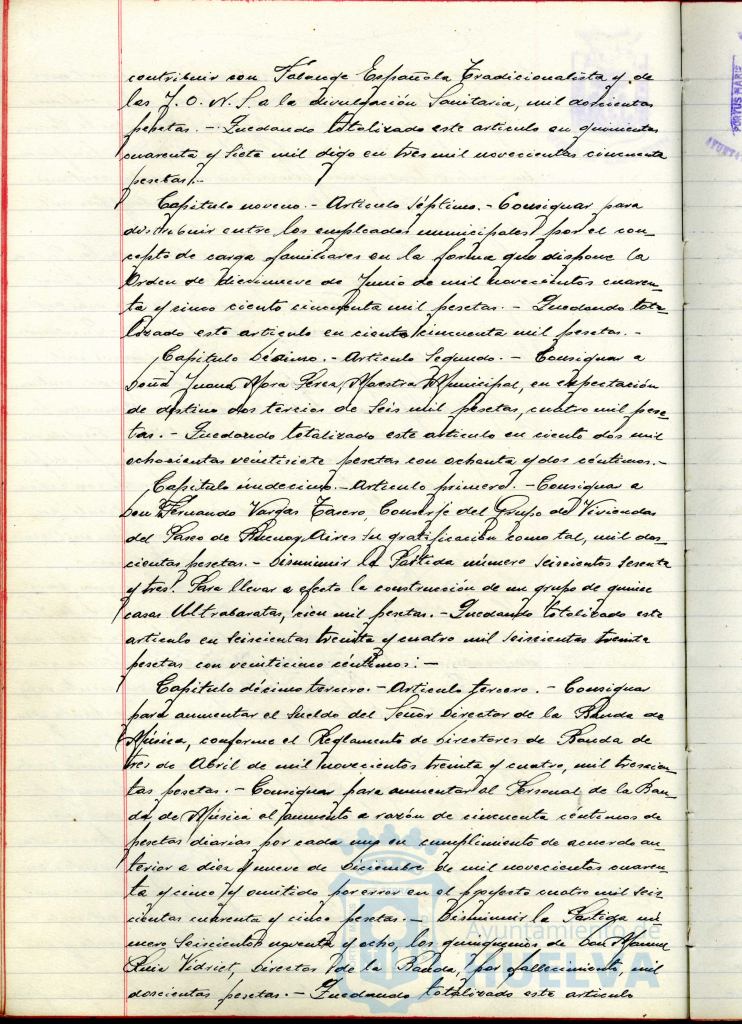 contribuir con Falange Española Tradicionalista y de
las J.O.N.S. a la divulgación Sanitaria, mil doscientas
pesetas. - Quedando totalizado este articulo en quinientas
cuarenta y siete mil digo en tres mil novecientas cincuenta
pesetas.-
Capitulo noveno. - Articulo Séptimo. - Consignar para
distribuir entre los empleados municipales por el con-
cepto de carga familiares en la forma que dispone la
Orden de diecinueve de Junio de mil novecientos cuaren-
ta y cinco ciento cincuenta mil pesetas. - Quedando tota-
lizado este articulo en ciento cincuenta mil pesetas. -
Capitulo Décimo. - Articulo Segundo. - Consignar a
Doña Juana Mora Perea, Maestra Municipal, en expectación
de destino dos tercios de seis mil pesetas, cuatro mil pese-
tas. - Quedando totalizado este articulo en ciento dos mil
ochocientas veintisiete pesetas con ochenta y dos céntimos. -
Capitulo undecimo. - Articulo primero. - Consignar a
Don Fernando Vargas Conserje del Grupo de Viviendas
del Paseo de Buenos Aires su gratificación como tal, mil dos-
cientas pesetas. - Disminuir la Partida número seiscientos sesenta
y tres. Para llevar a efecto la construcción de un grupo de quince
casas Ultrabaratas, cien mil pesetas. - Quedando totalizado este
articulo en seiscientas treinta y cuatro mil seiscientas treinta
pesetas con veinticinco céntimos. -
Capitulo décimo tercero. - Articulo tercero. - Consignar
para aumentar el sueldo del Señor Director de la Banda de
Música, conforme el Reglamento de Directores de Banda de
tres de Abril de mil novecientos treinta y cuatro, mil trescien-
tas pesetas. - Consignar para aumentar al Personal de la Ban-
da de Música el aumento a razón de cincuenta céntimos de
pesetas diarias por cada uno en cumplimiento de acuerdo an-
terior a diez y nueve de Diciembre de mil novecientos cuaren-
ta y cinco y omitido por error en el proyecto cuatro mil seis-
cientas cuarenta y cinco pesetas. - Disminuir la Partida nú-
mero seiscientos noventa y ocho, los quinquenios de Don Manuel
Ruiz Vidriet, Director de la Banda, por fallecimiento, mil
doscientas pesetas. - Quedando totalizado este articulo
Ayuntamiento de
HUELVA